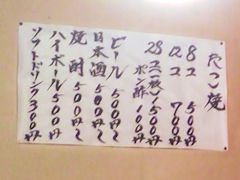 たこ焼
8コ 500円
12コ 700円
28コ(一枚)1500円
ポン酢 100円
ビール 500円〜
日本酒 500円〜
焼酎 500円〜
ハイボール 500円〜
ソフトドリンク 300円